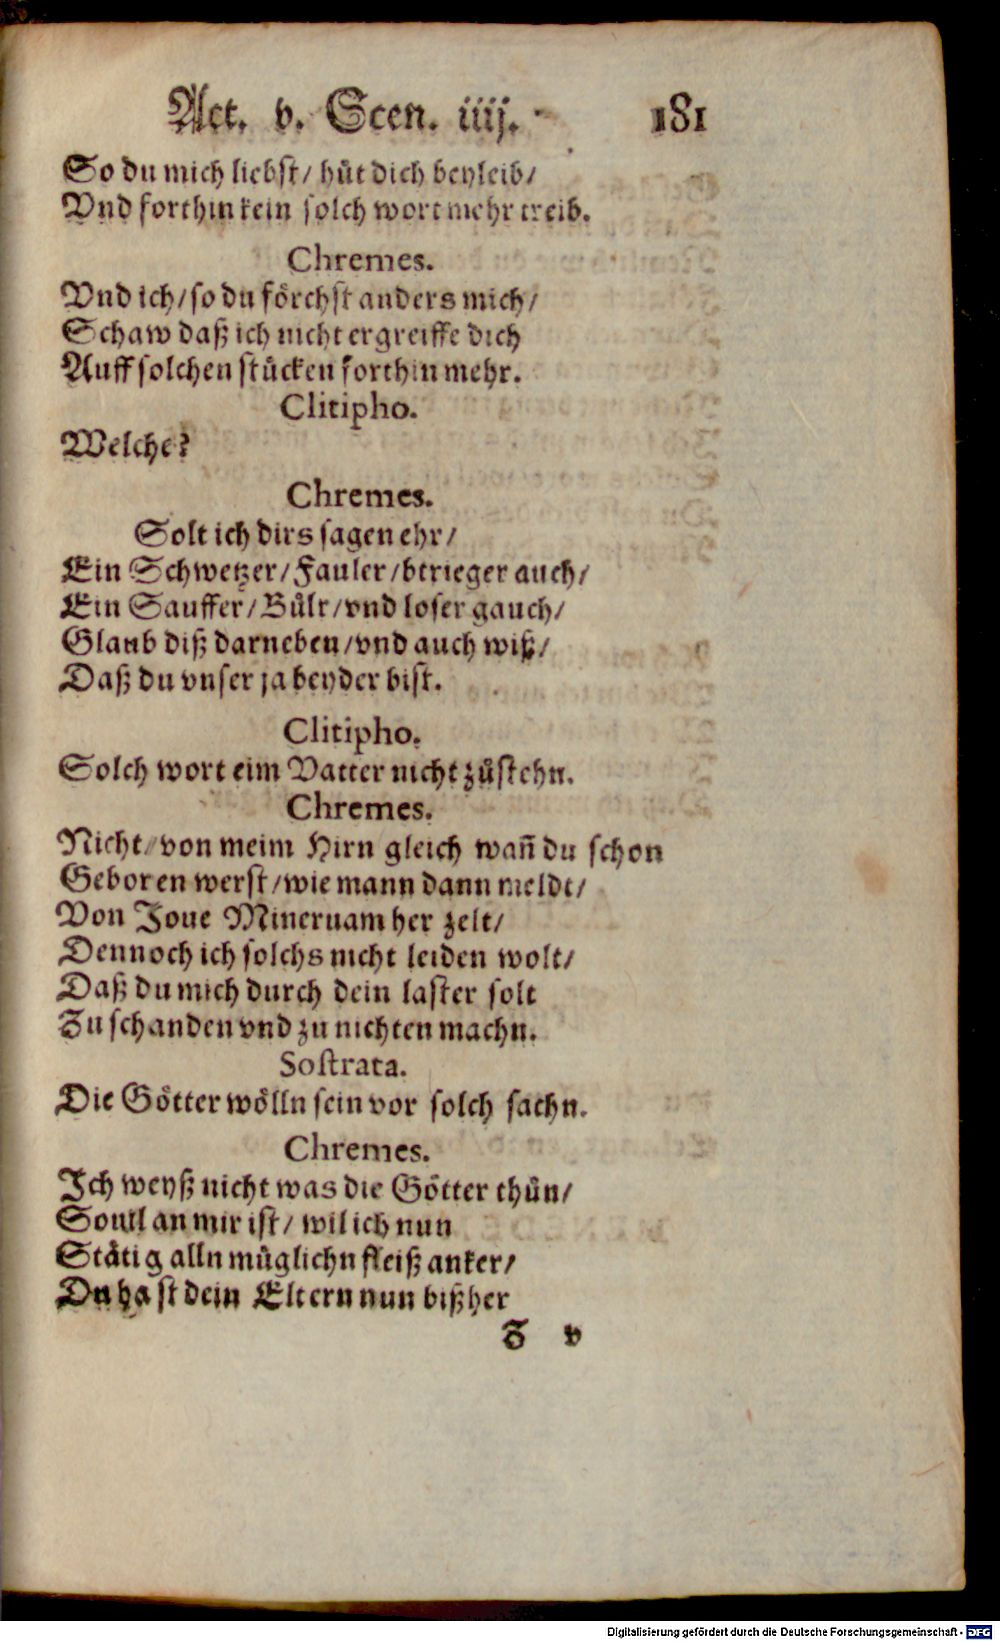 Act. v. Scen. iiij. 181
So du mich liebst/ hüt dich beyleib/
Vnd forthin kein solch wort mehr treib.
Chremes.
Vnd ich/ so du förchst anders mich/
Schaw daß ich nicht ergreiffe dich
Auff solchen stücken forthin mehr.
Clitipho.
Welche?
Chremes.
Solt ich dirs sagen ehr/
Ein Schwetzer/ Fauler/ btrieger auch/
Ein Sauffer/ Bůlr/ vnd loser gauch/
Glaub diß darneben/ vnd auch wiß/
Daß du vnser ja beyder bist.
Clitipho.
Solch wort eim Vatter nicht zůstehn.
Chremes.
Nicht/ von meim Hirn gleich wañ du schon
Geboren werst/ wie mann dann meldt/
Von Joue Mineruam her zelt/
Dennoch ich solchs nicht leiden wolt/
Daß du mich durch dein laster solt
Zu schanden vnd zu nichten machn.
Sostrata.
Die Götter wölln sein vor solch sachn.
Chremes.
Jch weyß nicht was die Götter thůn/
Souil an mir ist/ wil ich nun
Stätig alln müglichn fleiß anker/
Du hast dein Eltern nun bißher
Z v
Digitalisierung gefördert durch die Deutsche Forschungsgemeinschaft - DFG